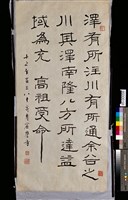 澤有所注川有所通余谷之
川其澤南隆八方所達益
域為充高祖受命